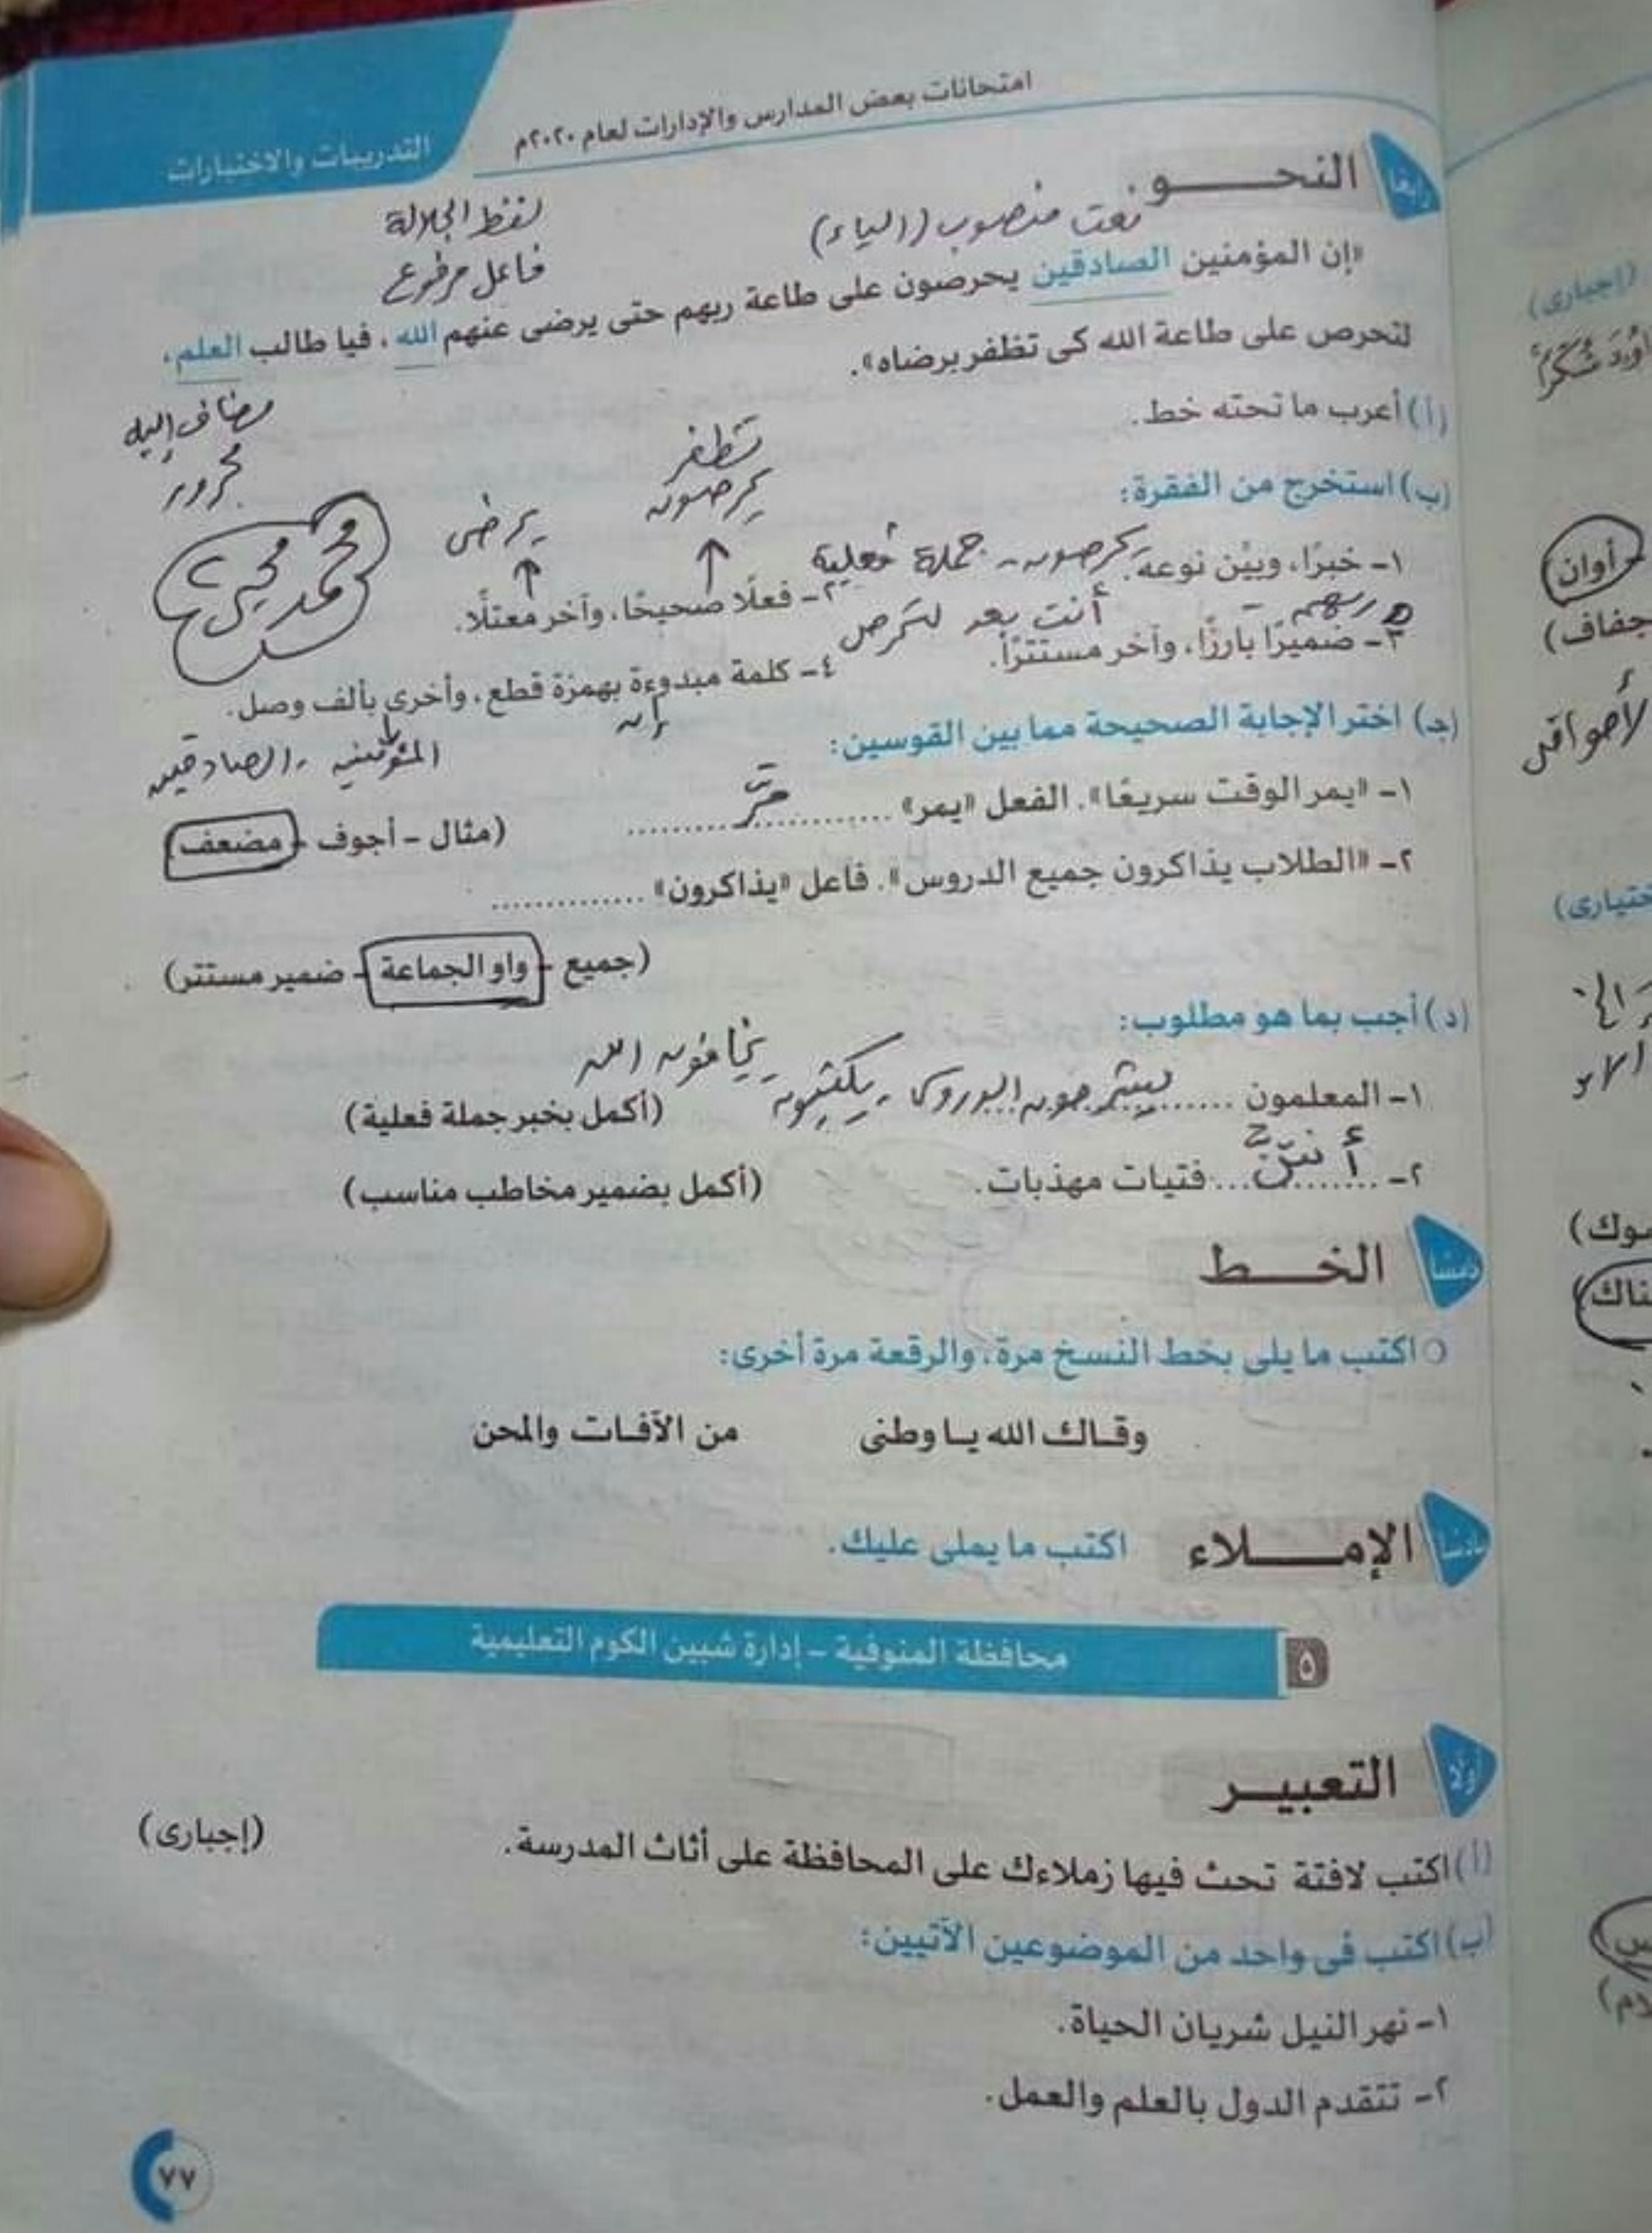 امتحانات بعض المدارس والإدارات لعام ٢٠٢٠م
التدريبات والاختبارات
رابعًا النحـــــو
نعت منصوب (الياء)
لفظ الجلالة
فاعل مرفوع
«إن المؤمنين الصادقين يحرصون على طاعة ربهم حتى يرضى عنهم الله، فيا طالب العلم،
لتحرص على طاعة الله كى تظفر برضاه».
مضاف إليه
مجرور
(أ) أعرب ما تحته خط.
(ب) استخرج من الفقرة:
تظفر
يحرصون
يرضى
محمد محيى
يحرصون - جملة فعلية
١- خبرًا، وبيّن نوعه.
٢- فعلًا صحيحًا، وآخر معتلًا.
ربهم - أنت بعد لتحرص
٣- ضميرًا بارزًا، وآخر مستترًا.
٤- كلمة مبدوءة بهمزة قطع، وأخرى بألف وصل.
إن
المؤمنين - الصادقين
(جـ) اختر الإجابة الصحيحة مما بين القوسين:
١- «يمر الوقت سريعًا». الفعل «يمر» .......... مرّ ..........
(مثال - أجوف - مضعف)
٢- «الطلاب يذاكرون جميع الدروس». فاعل «يذاكرون» ..............
(جميع - واو الجماعة - ضمير مستتر)
(د) أجب بما هو مطلوب:
يخافون الله
١- المعلمون ...... يشرحون الدروس - يكتبون
(أكمل بخبر جملة فعلية)
٢- ...... أنتنّ ...... فتيات مهذبات.
(أكمل بضمير مخاطب مناسب)
خامسًا الخـــــط
اكتب ما يلى بخط النسخ مرة، والرقعة مرة أخرى:
وقـاك الله يـا وطنى من الآفـات والمحن
سادسًا الإمـــــلاء اكتب ما يملى عليك.
٥ محافظة المنوفية - إدارة شبين الكوم التعليمية
أولًا التعبيـــر
(أ) اكتب لافتة تحث فيها زملاءك على المحافظة على أثاث المدرسة.
(إجبارى)
(ب) اكتب فى واحد من الموضوعين الآتيين:
١- نهر النيل شريان الحياة.
٢- تتقدم الدول بالعلم والعمل.
٧٧
(إجبارى)
أوان
جفاف)
ختيارى)